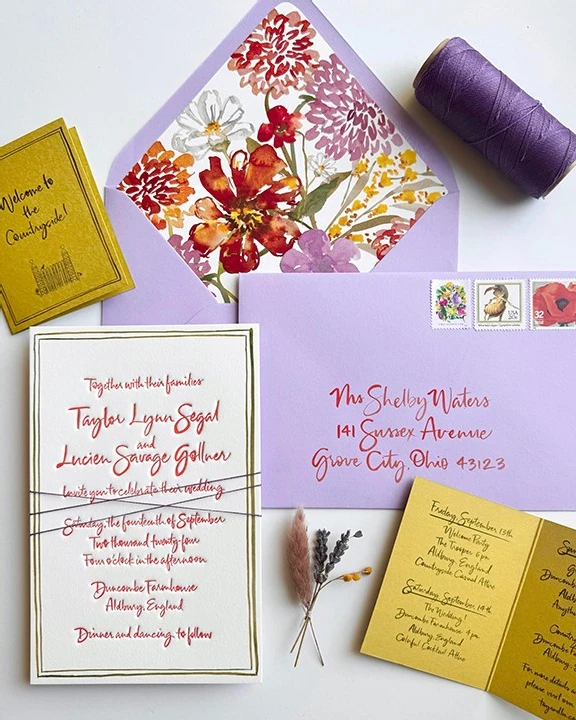 Welcome to
the
Countryside!
Together with their families
Taylor Lynn Segal
and
Lucien Savage Gollner
Invite you to celebrate their wedding
Saturday, the fourteenth of September
Two thousand twenty-four
Four o'clock in the afternoon
Duncombe Farmhouse
Aldbury, England
Dinner and dancing to follow
USA
20c
32
Ms Shelby Waters
141 Sussex Avenue
Grove City, Ohio 43123
Friday, September 13th
Welcome Party
The Trooper 6 pm
Aldbury, England
Countryside Casual Attire
Saturday, September 14th
The Wedding!
Duncombe Farmhouse 4 pm
Aldbury, England
Colorful Cocktail Attire
Aldbury
For more details a
please visit our